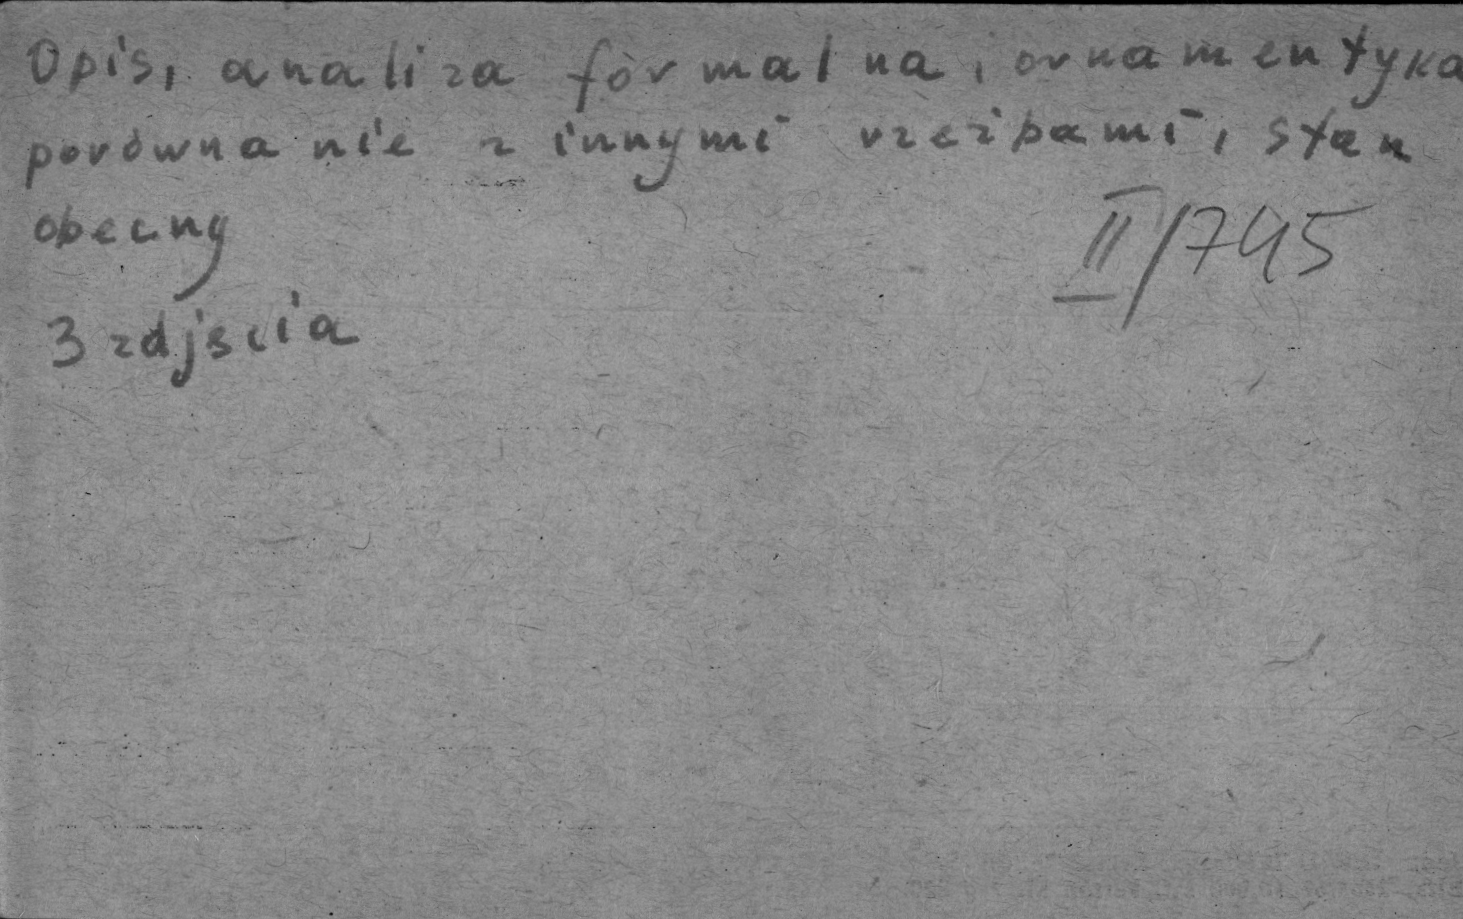 Opis, analiza formalna, ornamentyka
porównanie z innymi rzeźbami, stan
obecny
II/745
3 zdjścia